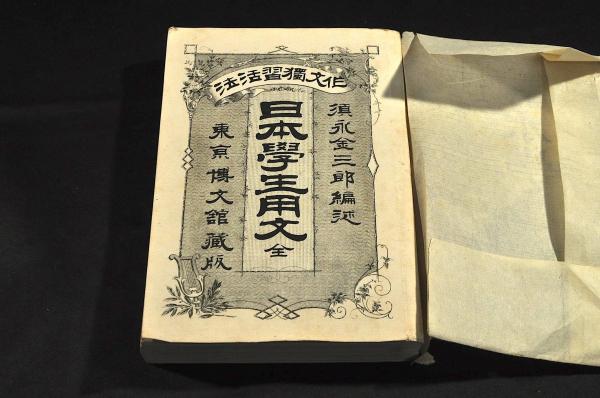 作文獨習活法
須永金三郎編述
日本學生用文 全
東京博文館藏版